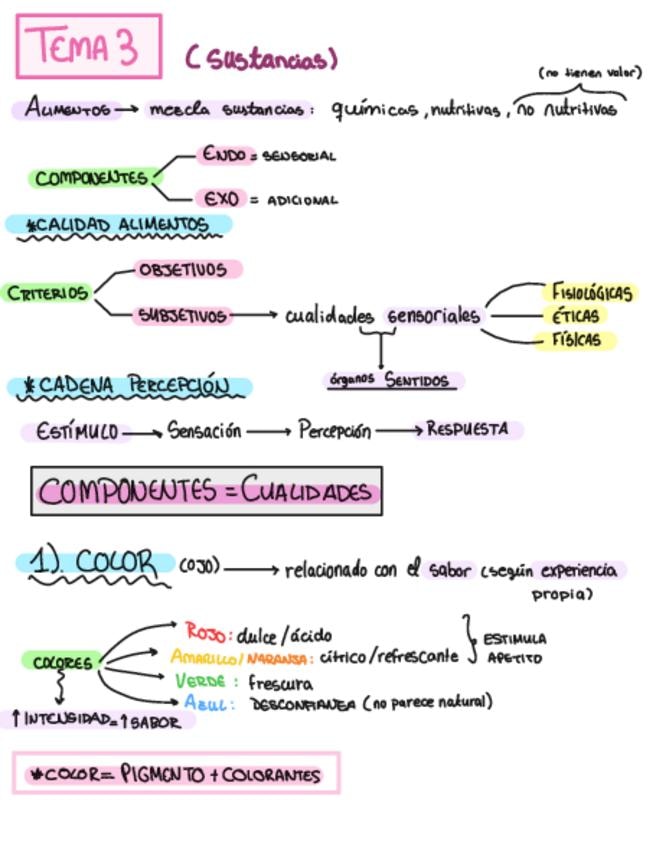 TEMA 3 (sustancias)
(no tienen valor)
ALIMENTOS → mezcla sustancias: químicas, nutritivas, no nutritivas
COMPONENTES
ENDO = SENSORIAL
EXO = ADICIONAL
*CALIDAD ALIMENTOS
CRITERIOS
OBJETIVOS
SUBJETIVOS → cualidades sensoriales
FISIOLÓGICAS
ÉTICAS
FÍSICAS
órganos SENTIDOS
*CADENA PERCEPCIÓN
ESTÍMULO → Sensación → Percepción → RESPUESTA
COMPONENTES = CUALIDADES
1). COLOR (OJO) → relacionado con el sabor (según experiencia
propia)
COLORES
ROJO: dulce/ácido
AMARILLO/NARANJA: cítrico/refrescante
VERDE: frescura
AZUL: DESCONFIANZA (no parece natural)
ESTIMULA
APETITO
↑INTENSIDAD=↑SABOR
*COLOR= PIGMENTO + COLORANTES